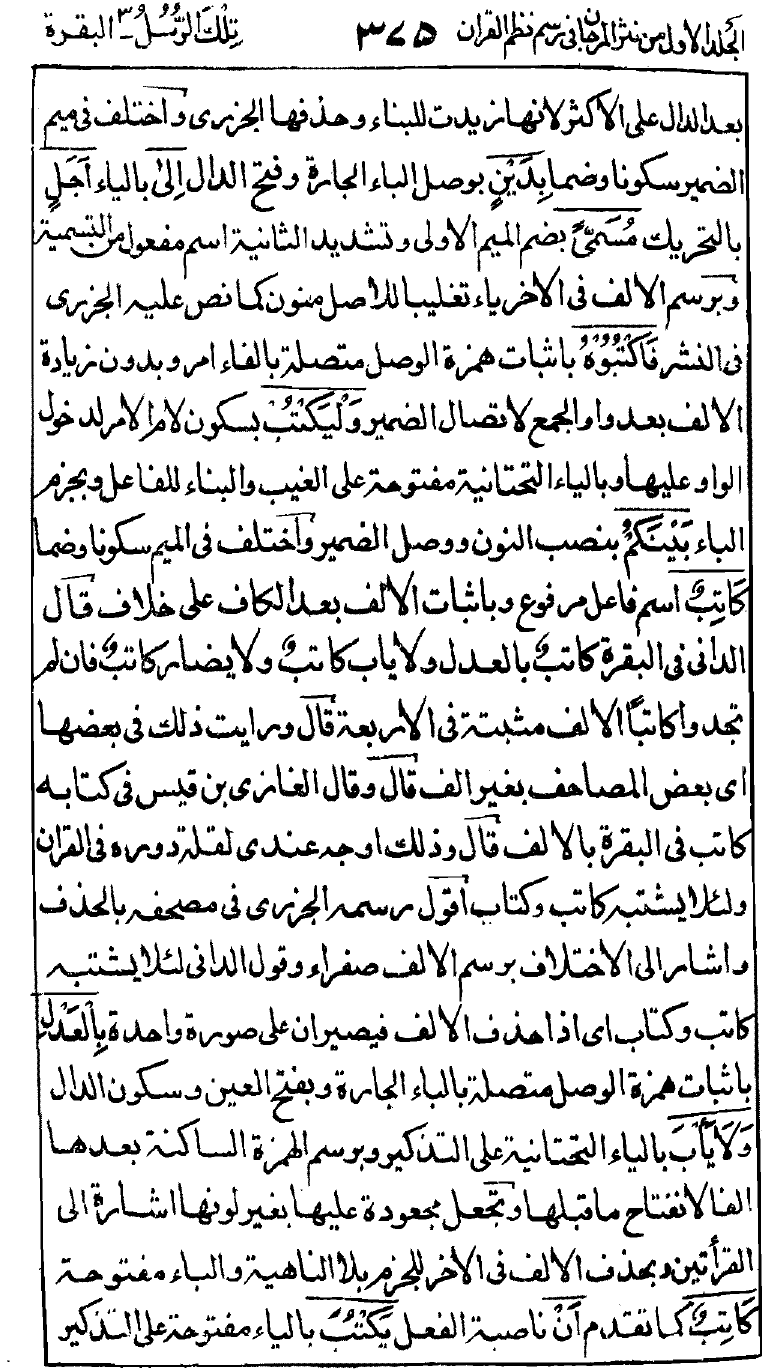 الجلد الاول من نثر المرجان فى رسم نظم القران ٣٧٥ تِلْكَ الرُّسُلُ ٣ - البقرة
بعد الدال على الاكثر لانها زيدت للبناء وحذفها الجزرى واختلف فى ميم
الضمير سكونا وضما بِدَيْنٍ بوصل الباء الجارة وفتح الدال اِلىٰ بالياء اَجَلٍ
بالتحريك مُسَمًّى بضم الميم الاولى وتشديد الثانية اسم مفعول من التسمية
وبرسم الالف فى الاخر ياء تغليبا للاصل منون كما نص عليه الجزرى
فى النشر فَاكْتُبُوْهُ باثبات همزة الوصل متصلة بالفاء امر وبدون زيادة
الالف بعد واو الجمع لاتصال الضمير وَلْيَكْتُبْ بسكون لام الامر لدخول
الواو عليها وبالياء التحتانية مفتوحة على الغيب والبناء للفاعل وبجزم
الباء بَيْنَكُمْ بنصب النون ووصل الضمير واختلف فى الميم سكونا وضما
كَاتِبٌ اسم فاعل مرفوع وباثبات الالف بعد الكاف على خلاف قال
الدانى فى البقرة كاتبٌ بالعدل ولا ياب كاتبٌ ولا يضار كاتبٌ فان لم
تجدوا كاتبًا الالف مثبتة فى الاربعة قال ورايت ذلك فى بعضها
اى بعض المصاحف بغير الف قال وقال الغازى بن قيس فى كتابه
كاتب فى البقرة بالالف قال وذلك اوجه عندى لقلة دوره فى القران
ولئلا يشتبه كاتب وكتاب اقول رسمه الجزرى فى مصحفه بالحذف
واشار الى الاختلاف برسم الالف صفراء وقول الدانى لئلا يشتبه
كاتب وكتاب اى اذا حذف الالف فيصيران على صورة واحدة بِالْعَدْلِ
باثبات همزة الوصل متصلة بالباء الجارة وبفتح العين وسكون الدال
وَلَا يَأْبَ بالياء التحتانية على التذكير وبرسم الهمزة الساكنة بعدها
الفا لانفتاح ماقبلها وتجعل مجعودة عليها بغير لونها اشارة الى
القرأتين وبحذف الالف فى الاخر للجزم بلا الناهية والباء مفتوحة
كَاتِبٌ كما تقدم اَنْ ناصبة الفعل يَكْتُبَ بالياء مفتوحة على التذكير